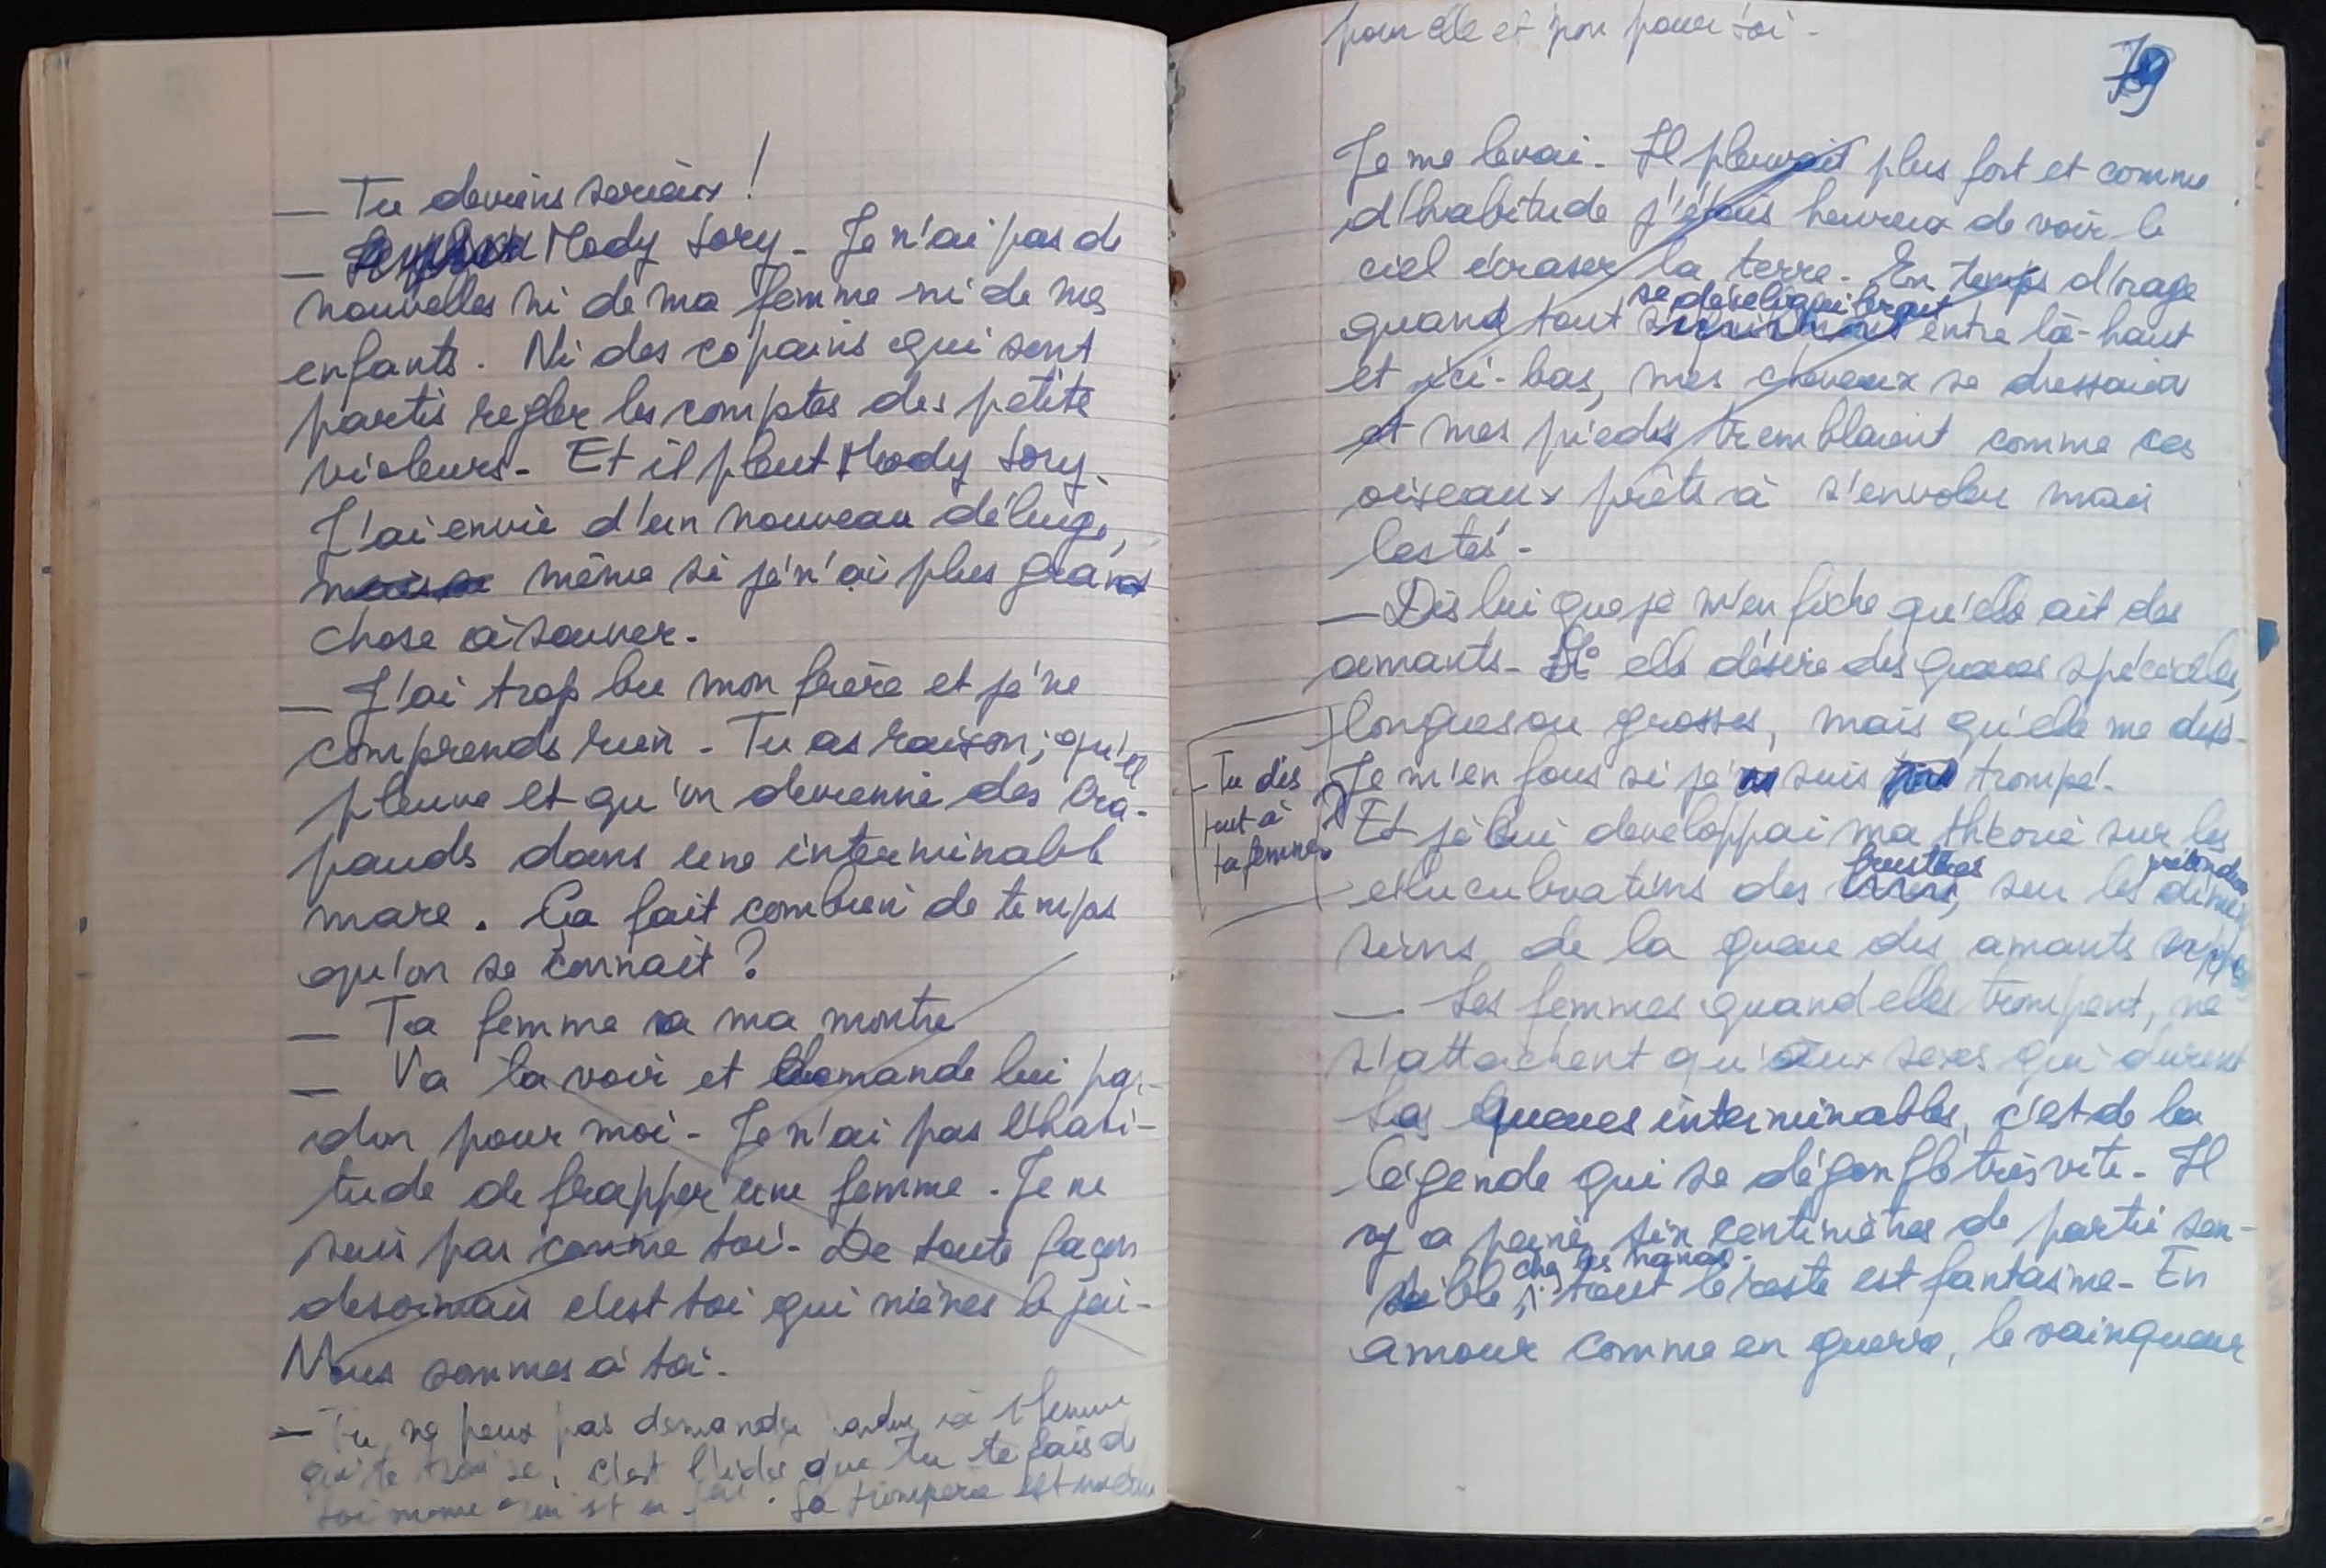 — Tu deviens serieux !
— Mody Sory - Je n'ai pas de
nouvelles ni de ma femme ni de mes
enfants. Ni des copains qui sont
partis regler les comptes des petits
violeurs - Et il pleut Mody Sory -
J'ai envie d'un nouveau déluge,
mais même si je n'ai plus grand
chose à sauver -
— J'ai trop bu mon frère et je ne
comprends rien - Tu as raison; qu'il
pleuve et qu'on devienne des cra-
pauds dans une interminable
mare. Ça fait combien de temps
qu'on se connait ?
— Ta femme a ma montre
— Va la voir et demande lui par-
don pour moi - Je n'ai pas l'habi-
tude de frapper une femme - Je ne
suis pas comme toi - De toute façon
desormais c'est toi qui mènes le jeu -
Nous sommes à toi -
— Tu ne peux pas demander à
c'est l'idée que tu te fais d
toi meme qui est en La tromperie est
pour elle et non pour toi -
79
Je me levai - Il pleuvait plus fort et comme
d'habitude j'étais heureux de voir le
ciel écraser la terre - En temps d'orage
se déséquilibrait
quand tout entre là-haut
et ici-bas, mes cheveux se dressaient
et mes pieds tremblaient comme ces
oiseaux prêts à s'envoler mais
lestés -
— Dis lui que je m'en fiche qu'elle ait des
amants - elle désire des queues spéciales,
longues ou grosses, mais qu'elle me dise -
Je m'en fous si je suis trompé -
- Tu dis
tout à
ta femme ?
Et je lui developpai ma théorie sur les
frustrés
elucubrations des sur les
sions de la queue des amants
— Les femmes quand elles trompent, ne
s'attachent qu'aux sexes qui durent
Les queues interminables, c'est de la
légende qui se dégonfle très vite - Il
y a à peine six centimètres de partie sen-
chez les nanas -
sible, tout le reste est fantasme - En
amour comme en guerre, le vainqueur